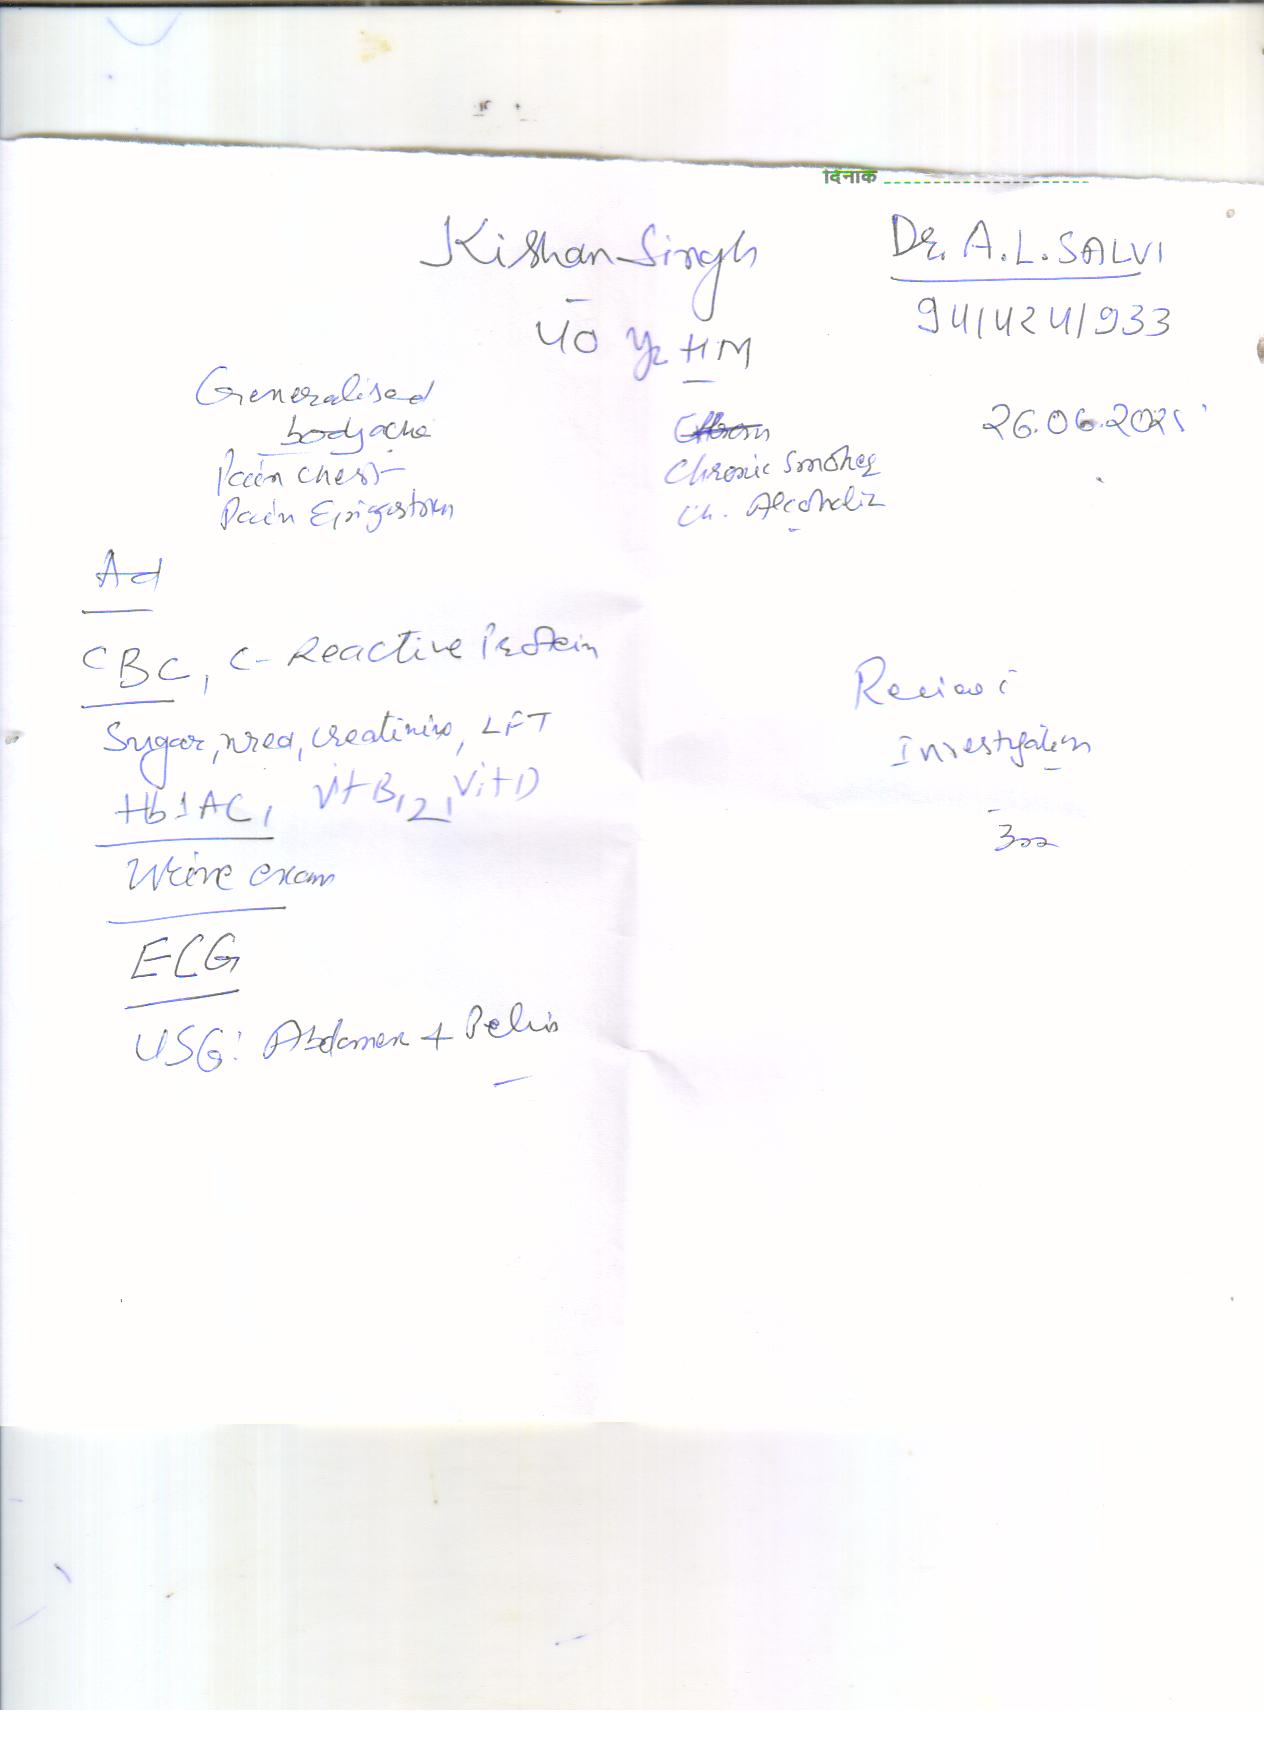 दिनांक
Kishan Singh
Dr. A.L. SALVI
9414241933
40 yr HM
Generalised
bodyache
26.06.2025
Pain chest
Chronic Smoker
Pain Epigastrium
Ch. Alcoholic
Ad
CBC, C-Reactive Protein
Sugar, urea, creatinine, LFT
Review c
Investigation
Hb1AC, Vit B12, Vit D
Urine exam
ECG
USG: Abdomen + Pelvis